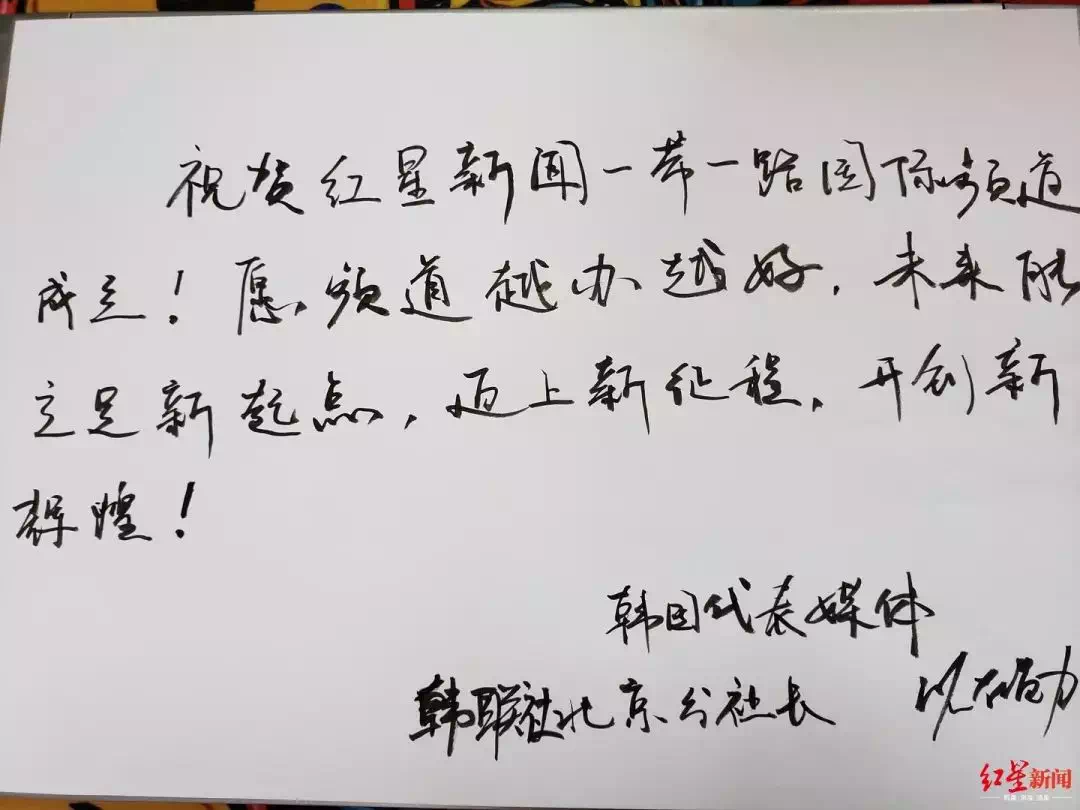 祝贺红星新闻一带一路国际频道
成立！愿频道越办越好，未来能
立足新起点，迈上新征程，开创新
辉煌！
韩国代表媒体
韩联社北京分社长
红星新闻